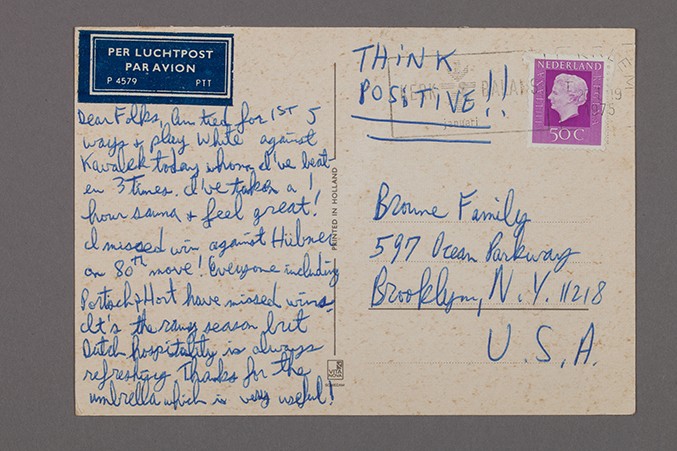 PER LUCHTPOST
PAR AVION
P 4579 PTT
Dear Folks, am tied for 1ST 5
ways & play white against
Kavalek today whom I've beat-
en 3 times. I've taken a 1
hour sauna & feel great!
I missed win against Hübner
on 80th move! Everyone including
Portisch & Hort have missed wins.
It's the rainy season but
Dutch hospitality is always
refreshing. Thanks for the
umbrella which is very useful!
PRINTED IN HOLLAND
VITA
NOVA
THINK
POSITIVE!!
januari
NEDERLAND
JULIANA REGINA
50 C
1975
Browne Family
597 Ocean Parkway
Brooklyn, N.Y. 11218
U.S.A.